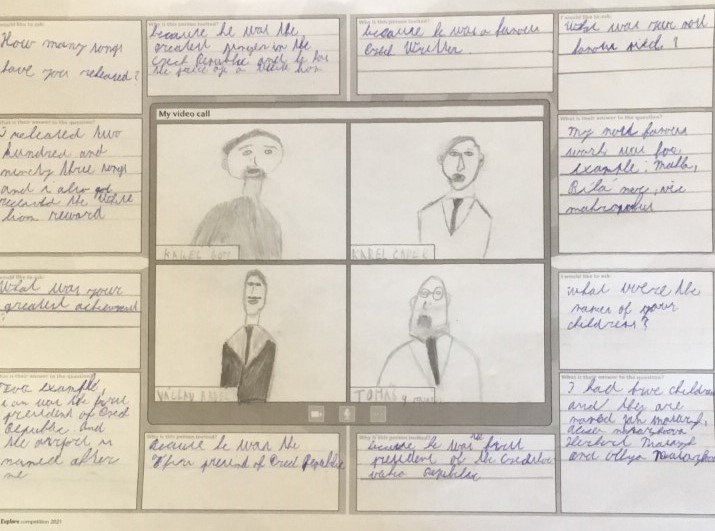 would like to ask:
How many songs
have you released?
Why is this person invited?
because he was the
greatest singer in the
Czech Republic and
Why is this person invited?
because he was a famous
Czech Writter.
I would like to ask:
What was your most
famous
?
What is their answer to the question?
I released two
hundred and
ninety three songs
and i also
the White
lion reward
My video call
KAREL GOTT
KAREL ČAPEK
VÁCLAV HAVEL
TOMÁŠ G.
What is their answer to the question?
My most famous
work was for
example: Matka,
Bílá
would like to ask:
What was your
greatest achievement
?
I would like to ask:
what were the
names of your
children?
What is their answer to the question?
For example
i was the first
president of Czech
Republic and
the airport is
named after
me
What is their answer to the question?
I had five children
and they are
named Jan Masaryk,
Herbert Masaryk
and Olga
Why is this person invited?
Because he was the
Why is this person invited?
because he was the first
president of the Czechoslo-
vakia Republic
Explore competition 2021